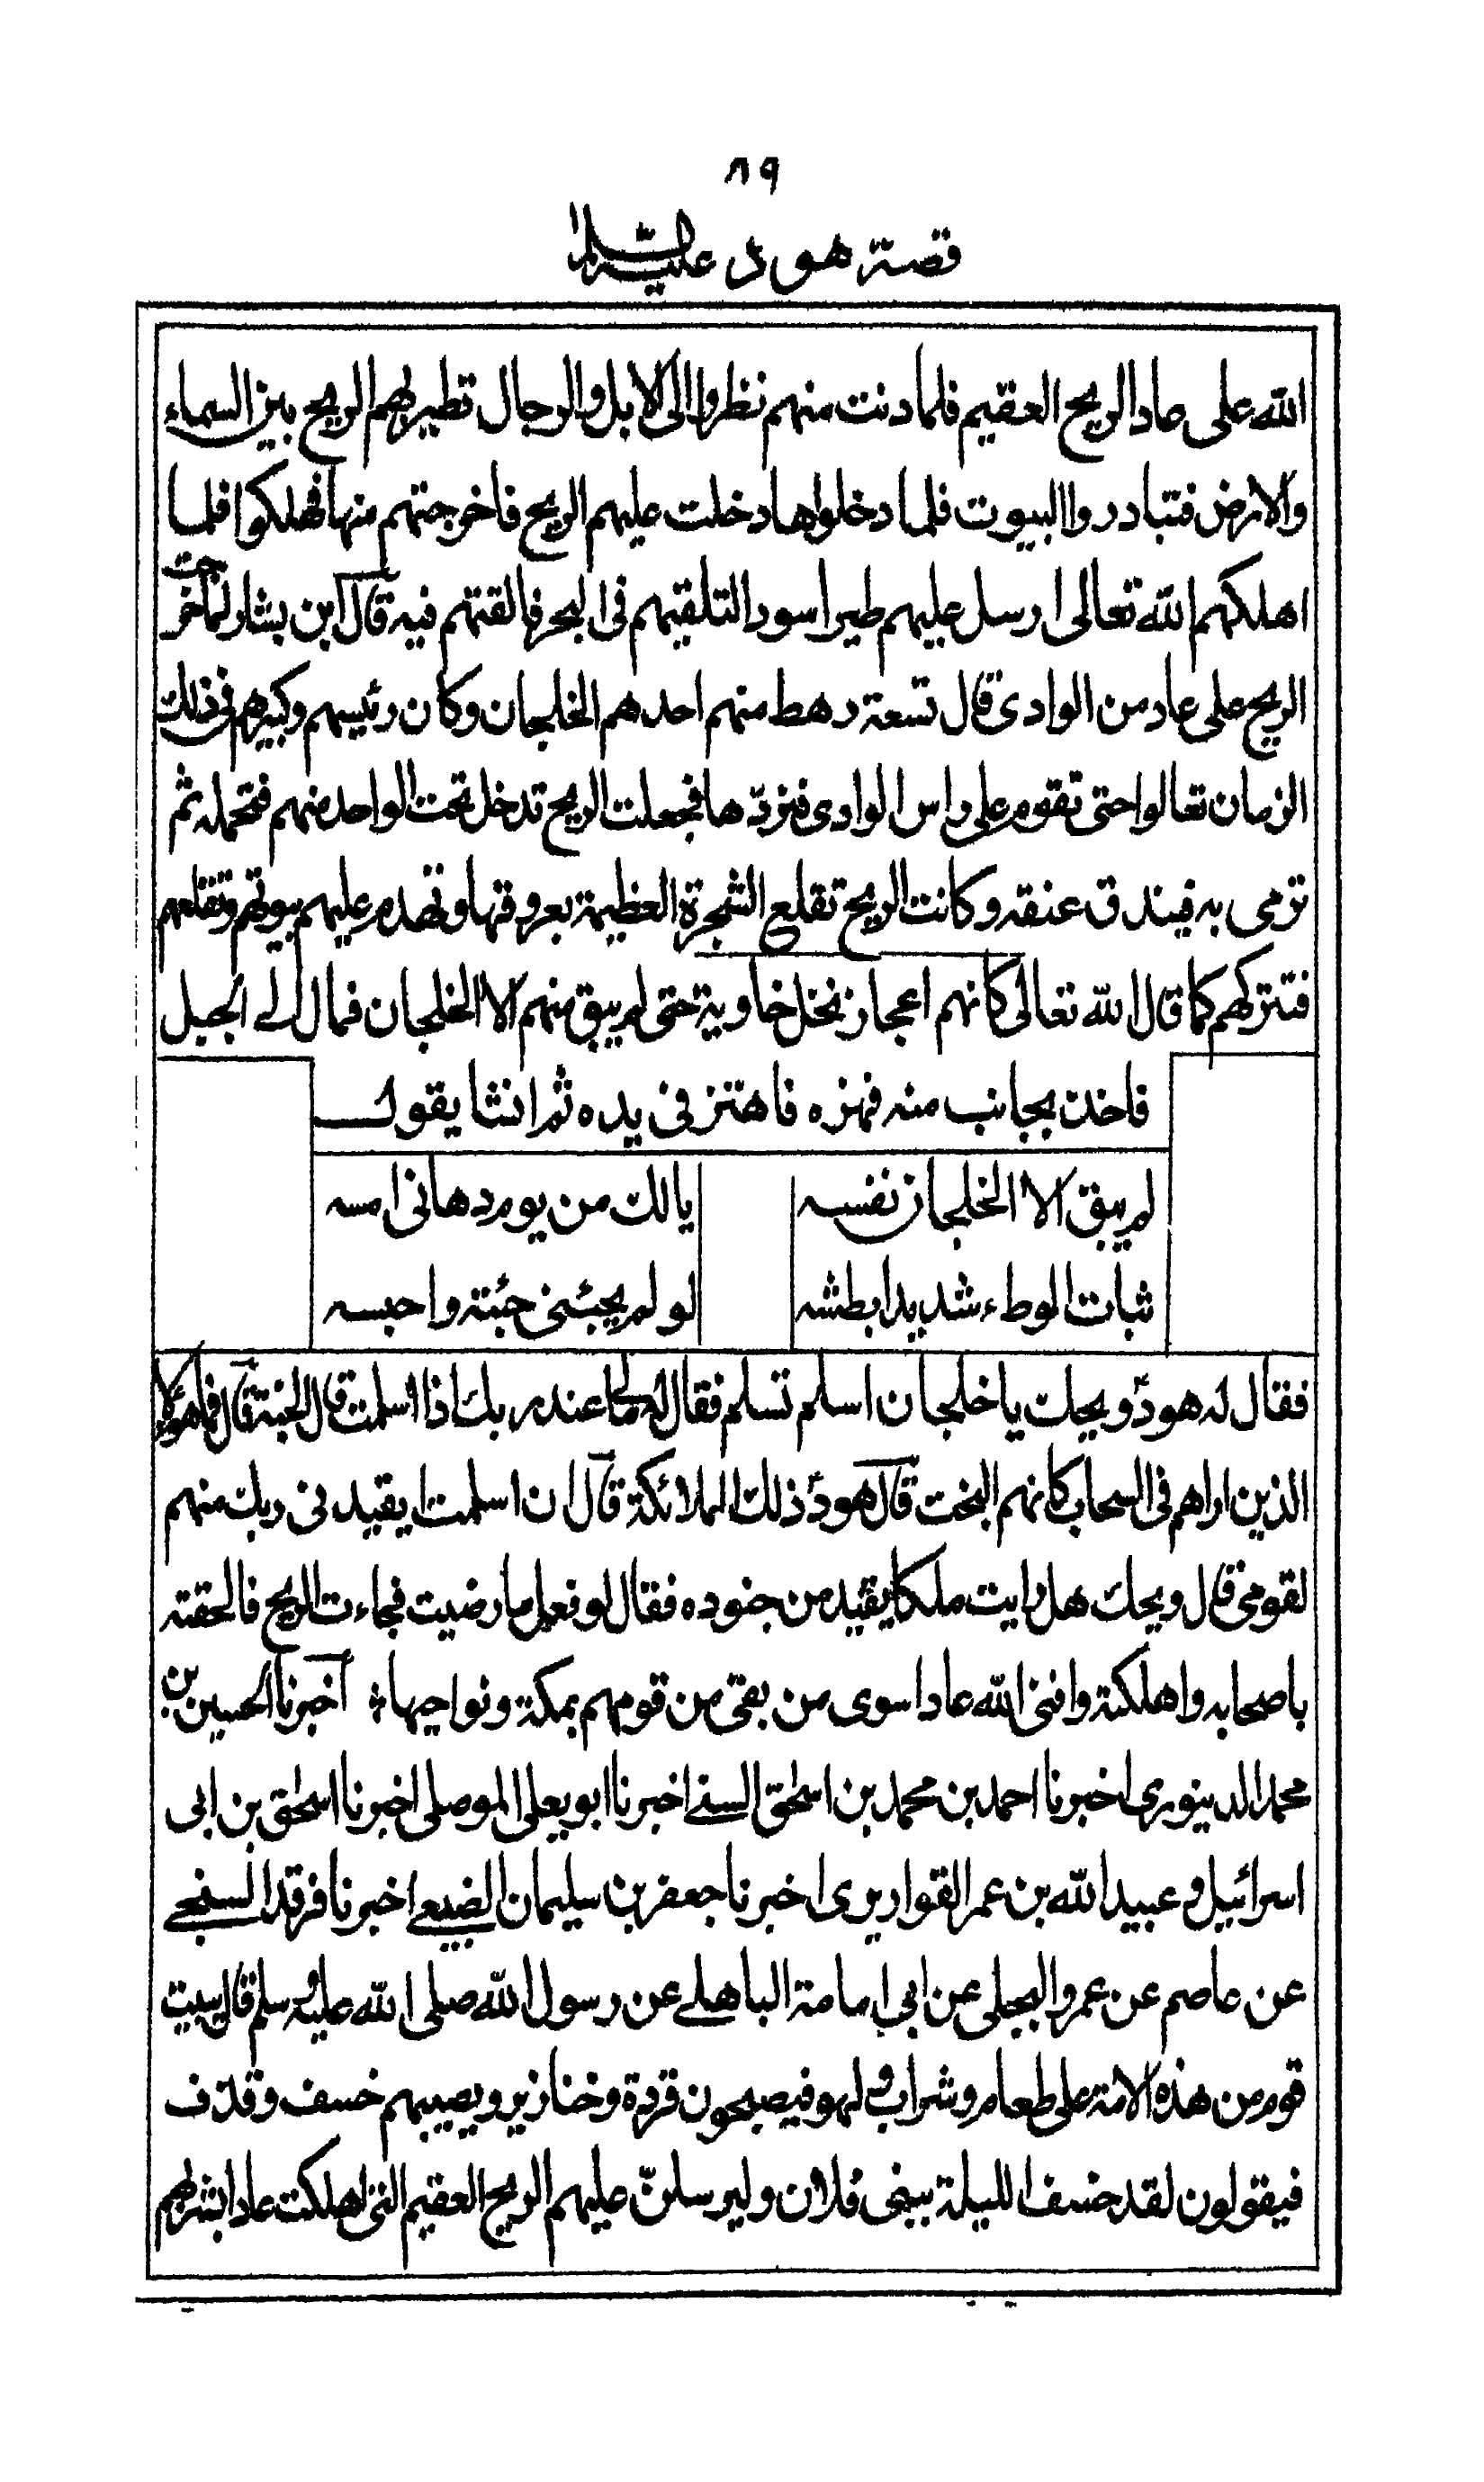 ٨٩
قصة هود عليه السلام
الله على عاد الريح العقيم فلما دنت منهم نظروا الى الابل والرجال تطير بهم الريح بين السماء
والارض فتبادروا البيوت فلما دخلوها دخلت عليهم الريح فاخرجتهم منها فهلكوا فلما
اهلكهم الله تعالى ارسل عليهم طيرا سودا لتلقيهم فى البحر فالقتهم فيه قال ابن بشار لما خرجت
الريح على عاد من الوادى قال تسعة رهط منهم احدهم الخلجان وكان رئيسهم وكبيرهم فى ذلك
الزمان تعالوا حتى تقوم على راس الوادى فنردّها فجعلت الريح تدخل تحت الواحد منهم فتحمله ثم
ترمى به فيندق عنقه وكانت الريح تقلع الشجرة العظيمة بعروقها وتهدم عليهم بيوتهم وتقلعهم
فتتركهم كما قال الله تعالى كانهم اعجاز نخل خاوية حتى لم يبق منهم الا الخلجان فمال الى الجبل
فاخذ بجانب منه فهزه فاهتز فى يده ثم انشا يقول
لم يبق الا الخلجان نفسه يالك من يوم دهانى امسه
ثبات الوطء شديدا بطشه لو لم يجئنى جئته واحبسه
فقال له هودٌ ويحك يا خلجان اسلم تسلم فقال له ما عند ربك اذا اسلمت قال الجنة قال فما هؤلاء
الذين اراهم فى السحاب كانهم البخت قال هودٌ ذلك الملائكة قال ان اسلمت ايقيدنى ربك منهم
لقومى قال ويحك هل رايت ملكا يقيد من جنوده فقال لو فعل ما رضيت فجاءت الريح فالحقته
باصحابه واهلكته وافنى الله عادا سوى من بقى من قومهم بمكة ونواحيها اخبرنا الحسين بن
محمد الدينورى اخبرنا احمد بن محمد بن اسحق السنى اخبرنا ابو يعلى الموصلى اخبرنا اسحق بن ابى
اسرائيل وعبيد الله بن عمر القواريرى اخبرنا جعفر بن سليمان الضبعى اخبرنا فرقد السنجى
عن عاصم عن عمرو البجلى عن ابى امامة الباهلى عن رسول الله صلى الله عليه وسلم قال يبيت
قوم من هذه الامة على طعام وشراب ولهو فيصبحون قردة وخنازير ويصيبهم خسف وقذف
فيقولون لقد خسف الليلة ببنى فلان وليرسلنّ عليهم الريح العقيم التى اهلكت عادا بشربهم